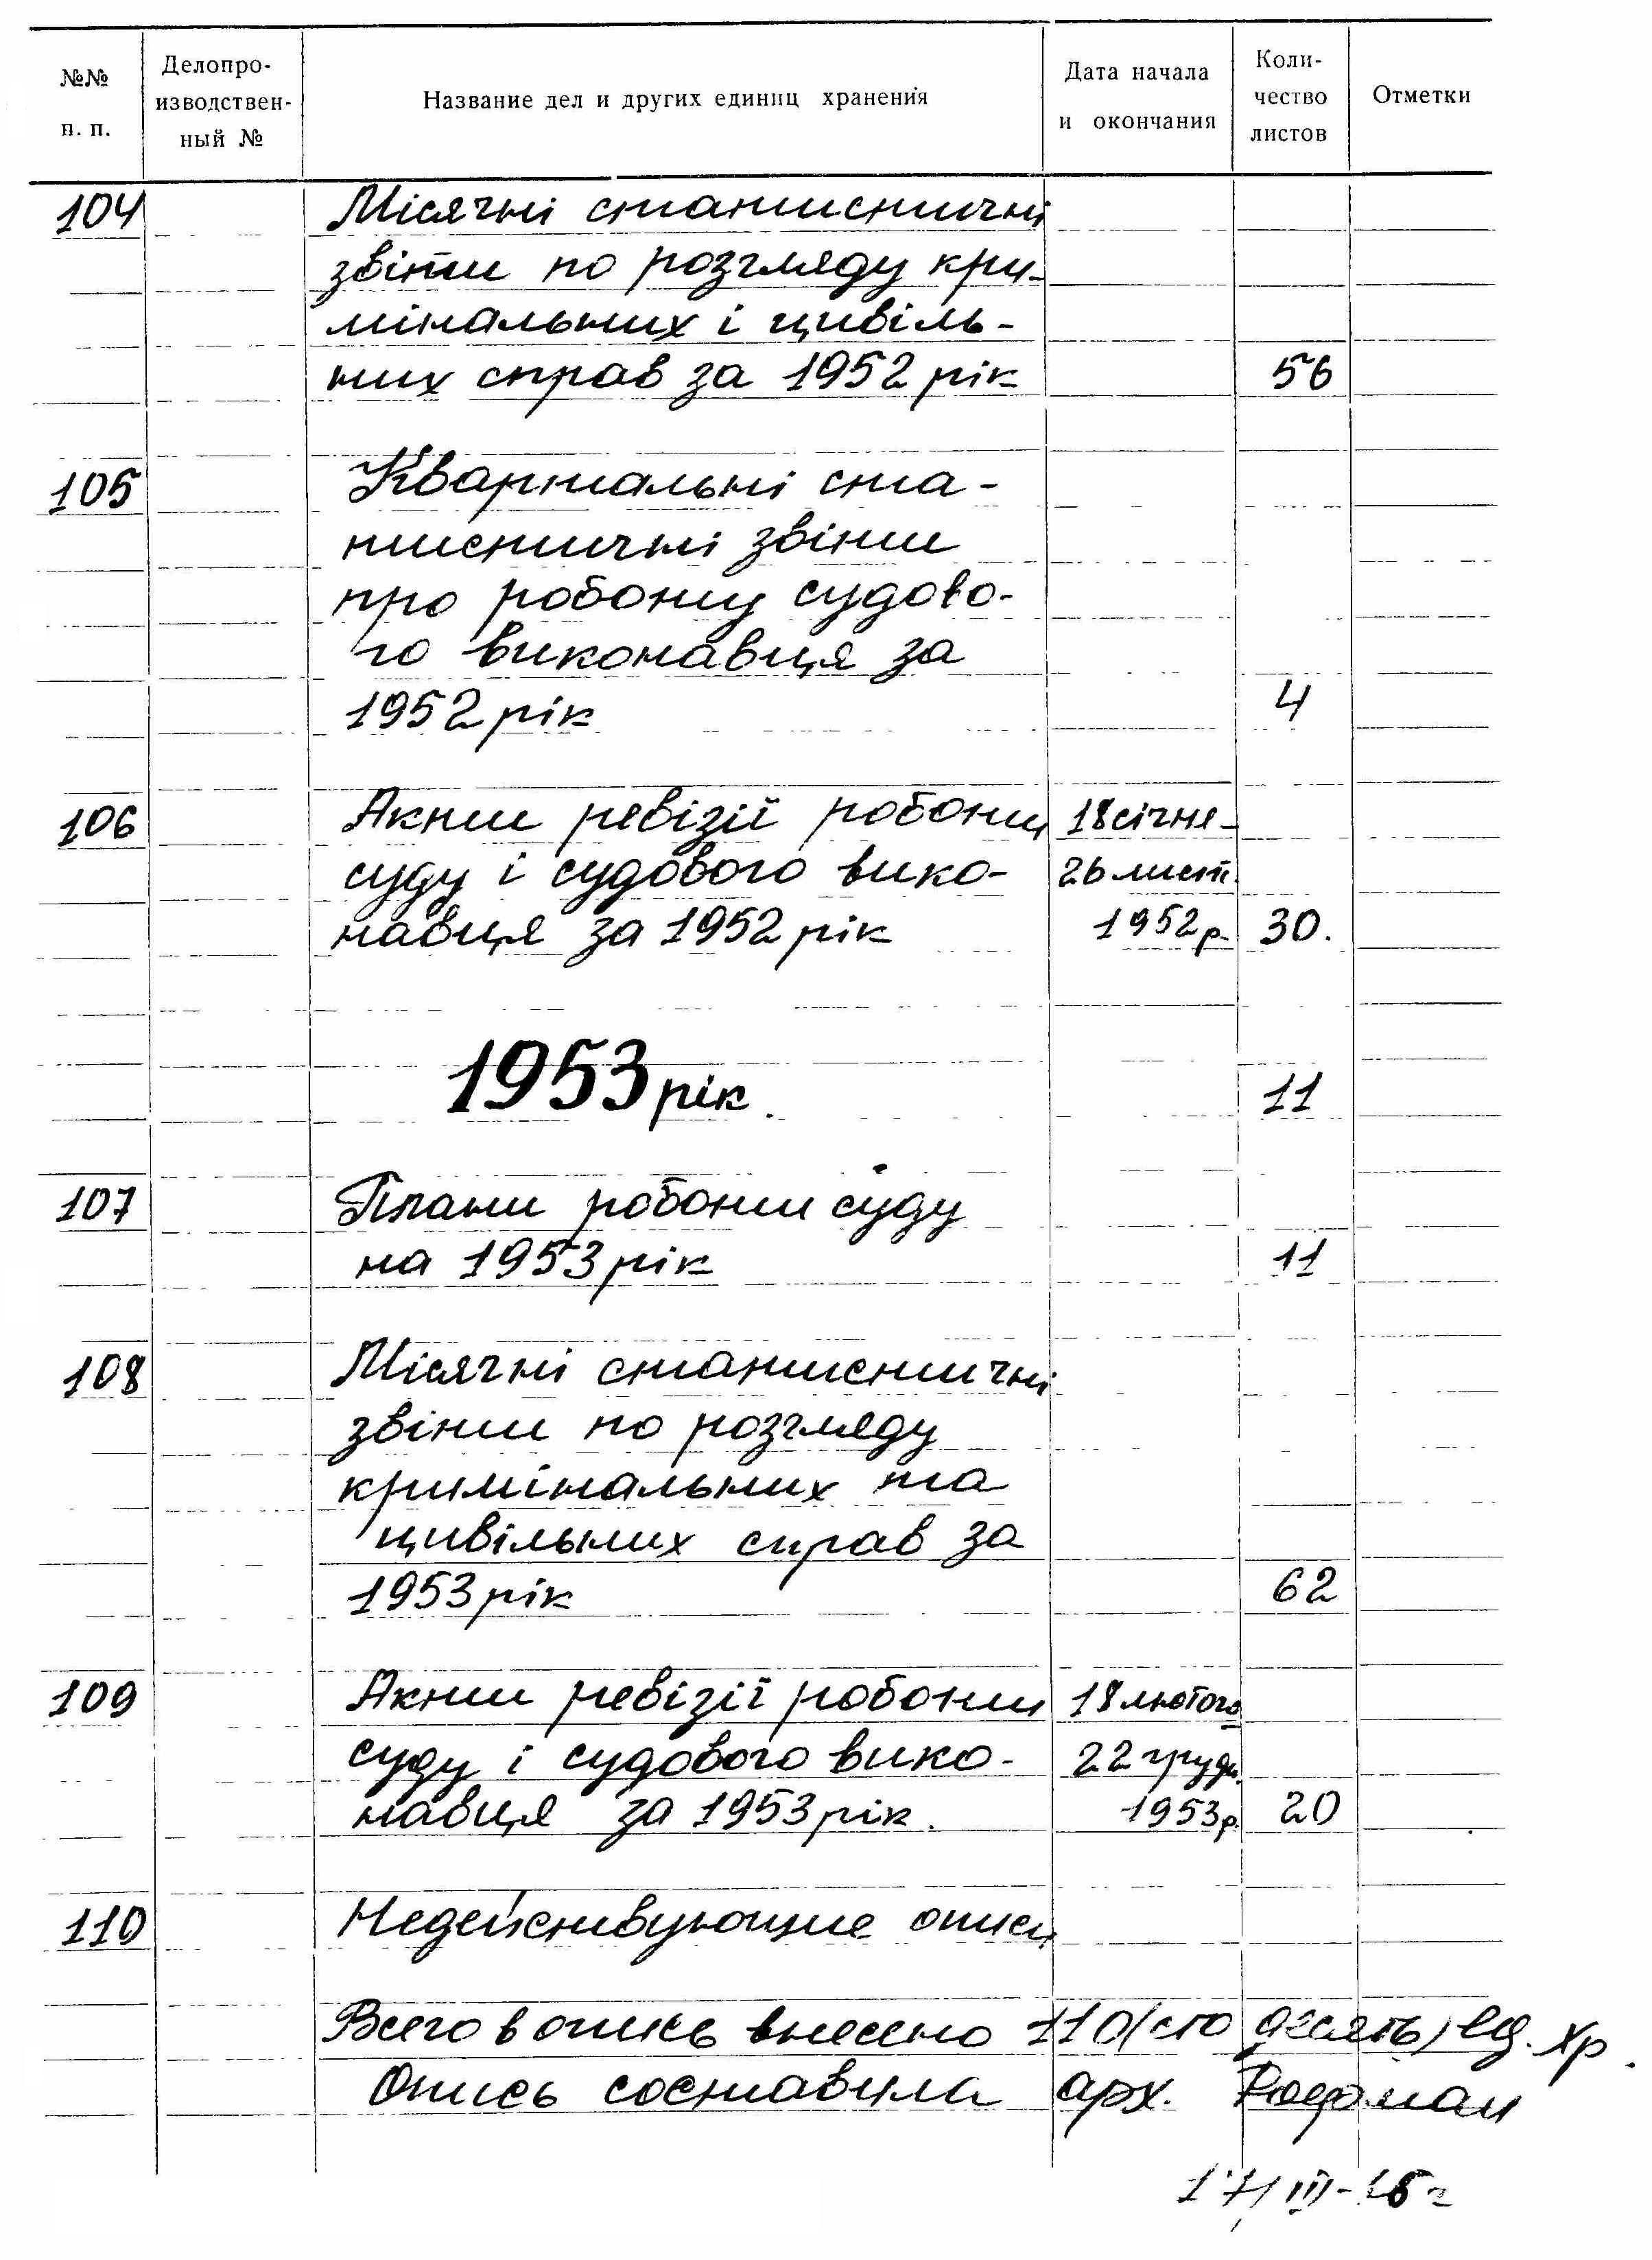 №№ п. п.
Делопро-
изводствен-
ный №
Название дел и других единиц хранения
Дата начала
и окончания
Коли-
чество
листов
Отметки
104 Місячні статистичні
звіти по розгляду кри-
мінальних і цивіль-
них справ за 1952 рік 56
105 Квартальні ста-
тистичні звіти
про роботу судово-
го виконавця за
1952 рік 4
106 Акти ревізії роботи 18 січня-
суду і судового вико- 26 лист.
навця за 1952 рік 1952 р. 30.
1953 рік. 11
107 Плани роботи суду
на 1953 рік 11
108 Місячні статистичні
звіти по розгляду
кримінальних та
цивільних справ за
1953 рік 62
109 Акти ревізії роботи 18 лютого
суду і судового вико- 22 груд.
навця за 1953 рік. 1953 р. 20
110 Недействующие описи
Всего в опись внесено 110 (сто десять) ед. хр.
Опись составила арх.
17/III-